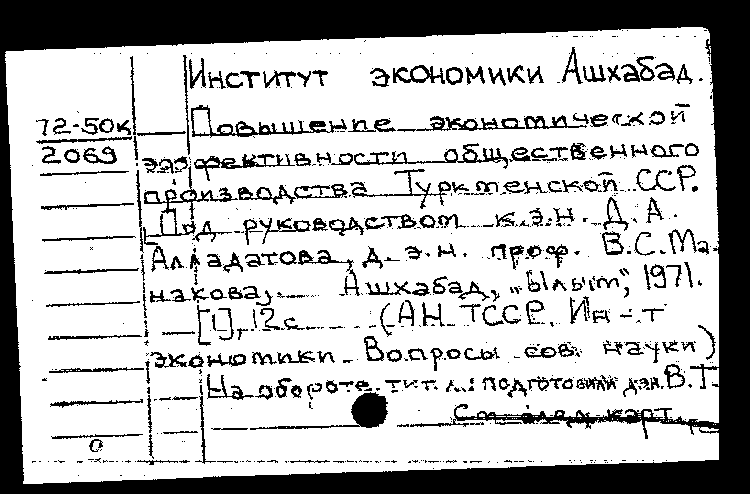 Институт экономики Ашхабад.
72-50к Повышение экономической
2069 эффективности общественного
производства Туркменской ССР.
[Под руководством к.э.н. Д.А.
Алладатова, д.э.н. проф. В.С.Ма-
накова]. Ашхабад, „Ылым", 1971.
[1], 12 с (АН ТССР. Ин-т
экономики. Вопросы сов. науки)
На обороте тит. л.: подготовили В.Т.
См. след. карт.
0